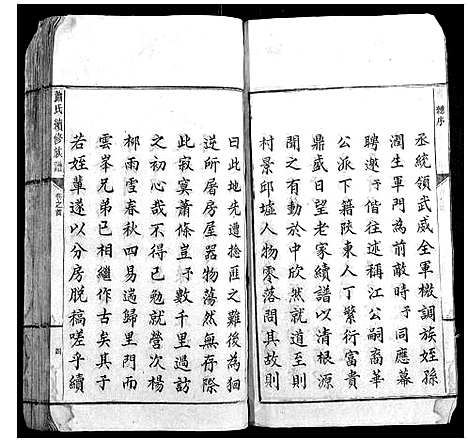 總序
丞統領武威全軍檄調族姪孫
潤生軍門為前敵時予同應幕
聘邀予偕往述稱江公嗣裔華
公派下籍陝東人丁繁衍富貴
鼎盛日望老家續譜以清根源
聞之動於中欣然就道至則
村景邱墟人物零落問其故則
曰此地先遭捻匪之難後為徊
逆所屠房屋器物蕩然無存際
此寂寞蕭條豈予數千里過訪
文初心哉不得已勉就營次楊
柳雨雪春秋四易遄歸里門而
雲峯兄弟已相繼作古矣其子
若姪輩遂以分房脫稿嗟乎續
蕭氏續修族譜
卷之首
四